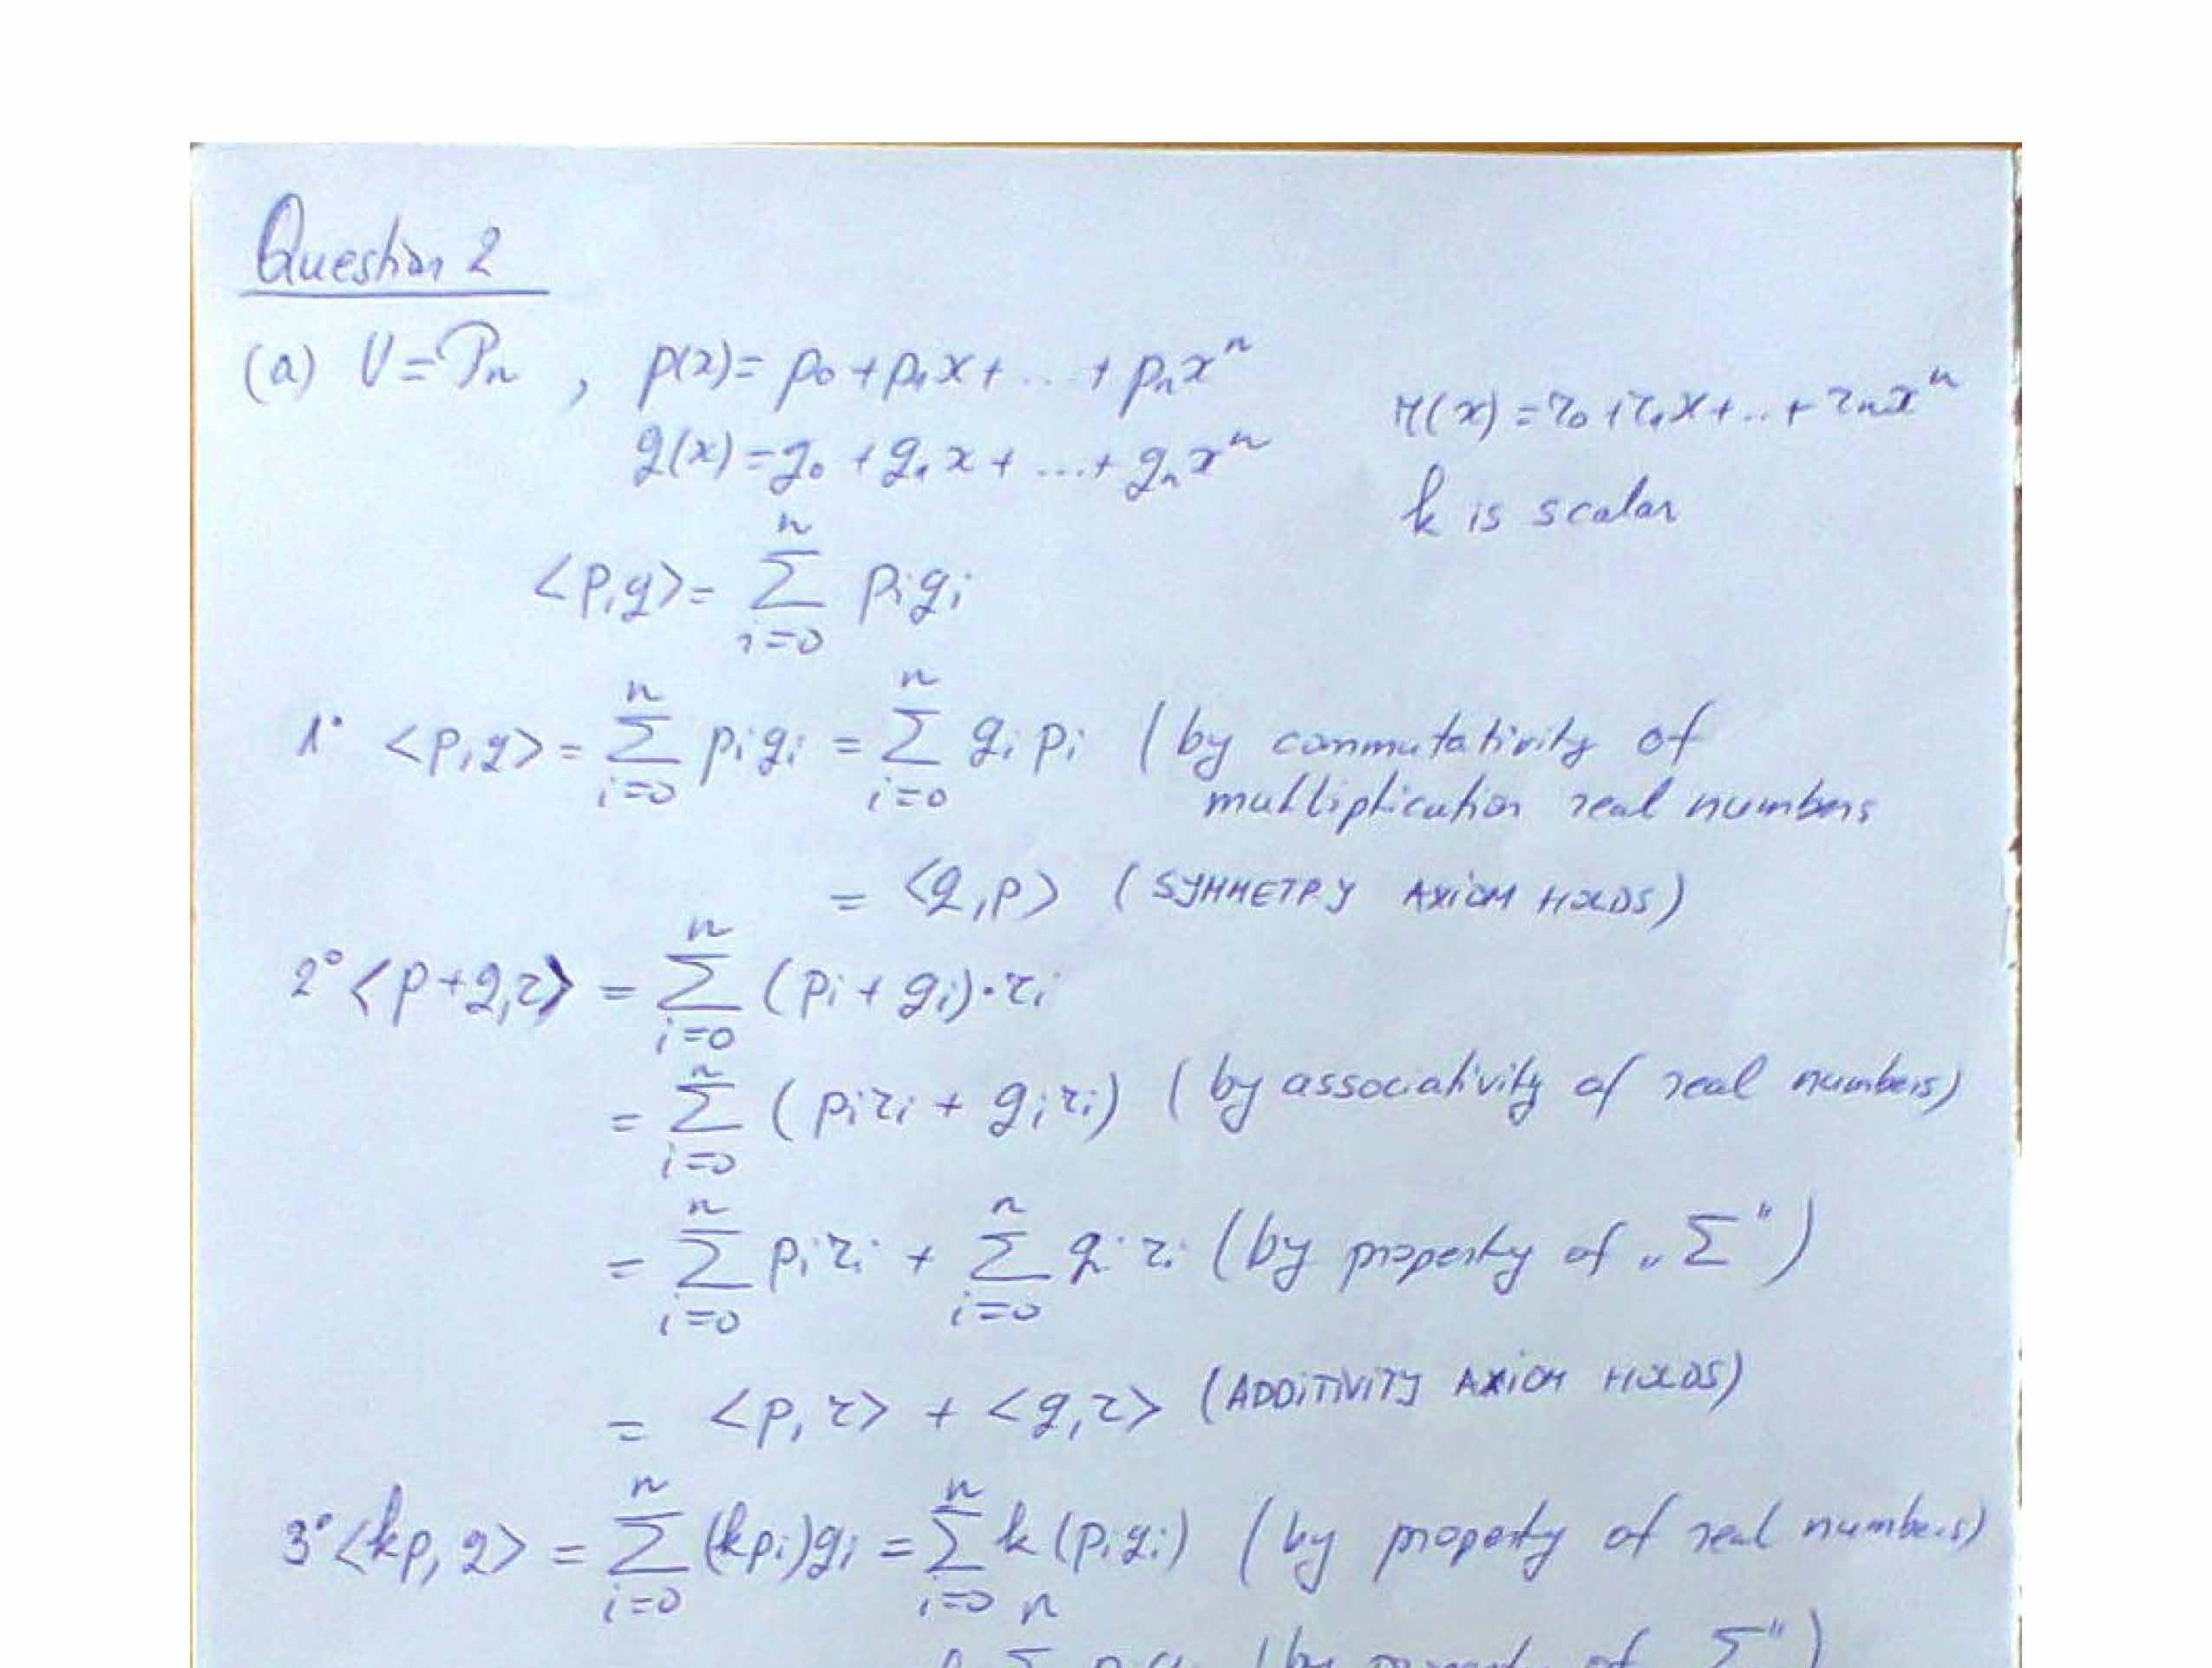 Question 2
(a) V = Pn , p(x) = p₀ + p₁x + ... + pₙxⁿ
r(x) = r₀ + r₁x + .. + rₙxⁿ
q(x) = q₀ + q₁x + ... + qₙxⁿ
k is scalar
<p,q> = ∑ᵢ₌₀ⁿ pᵢqᵢ
1° <p,q> = ∑ᵢ₌₀ⁿ pᵢqᵢ = ∑ᵢ₌₀ⁿ qᵢpᵢ (by commutativity of
multiplication real numbers
= <q,p> (SYMMETRY AXIOM HOLDS)
2° <p+q,r> = ∑ᵢ₌₀ⁿ (pᵢ + qᵢ)·rᵢ
= ∑ᵢ₌₀ⁿ (pᵢrᵢ + qᵢrᵢ) (by associativity of real numbers)
= ∑ᵢ₌₀ⁿ pᵢrᵢ + ∑ᵢ₌₀ⁿ qᵢrᵢ (by property of „∑")
= <p,r> + <q,r> (ADDITIVITY AXIOM HOLDS)
3° <kp,q> = ∑ᵢ₌₀ⁿ (kpᵢ)qᵢ = ∑ᵢ₌₀ⁿ k(pᵢqᵢ) (by property of real numbers)